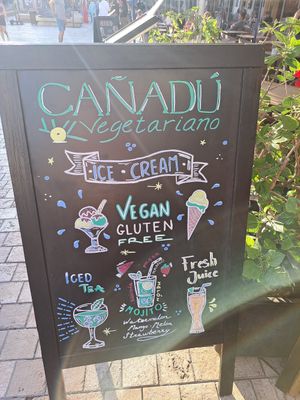 CAÑADÚ
Vegetariano
ICE CREAM
VEGAN
GLUTEN
FREE
ICED
TEA
MOJITO
Watermelon
Mango Melon
Strawberry
Fresh
Juice